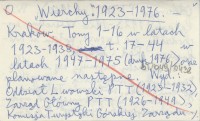 Wierchy. 1923-1976. —
Kraków. Tomy 1-16 w latach
1923-1938, t. 17-44 w
latach 1947-1975 (druk 1976), oraz
planowane następne. Wyd.:
Oddział Lwowski PTT (1923-1932),
Zarząd Główny PTT (1926-1949),
Komisja Turystyki Górskiej Zarządu